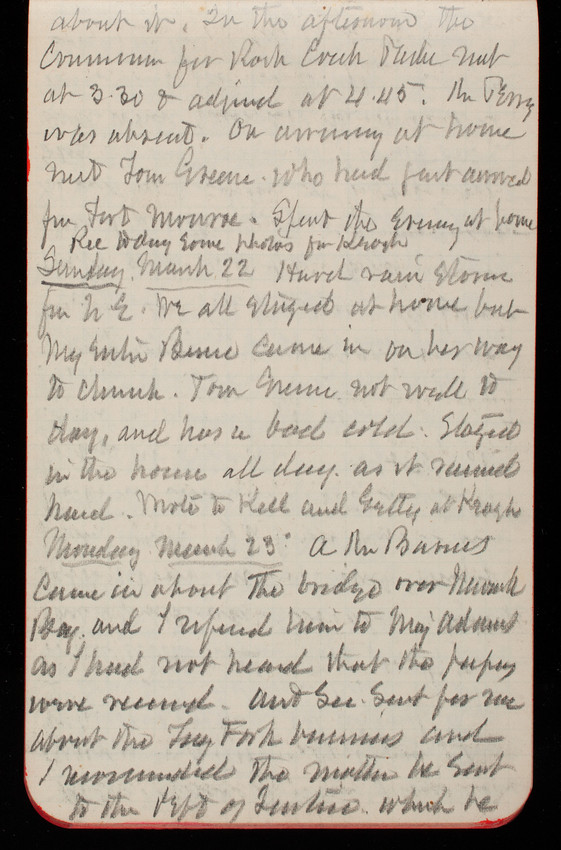 about it. In the afternoon the
Commission for Rock Creek Park met
at 3.30 & adjnd at 4.45. Mr Perry
was absent. On arriving at home
met Tom Greene who had just arrived
from Fort Monroe. Spent the Evening at home
Rec today some photos for
Sunday March 22 Hard rain storm
from N E. We all stayed at home but
My Sister Came in on her way
to Church. Tom Greene not well to
day, and has a bad cold. Stayed
in the house all day as it rained
hard. Wrote to Kell and at
Monday March 23d A Mr Barnes
Came in about the bridge over Newark
Bay and I referred him to Maj Adams
as I had not heard that the papers
were received. Asst Sec Sent for me
about the Fork business and
I recommended the matter be Sent
to the Dept of Justice. which he